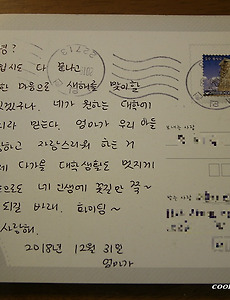 녕?
입시도 다 끝나고
한 마음으로 새해를 맞이할
있겠구나. 네가 원하는 대학에
리라 믿는다. 엄마가 우리 아들
랑하고 자랑스러워 하는 거
제 다가올 대학 생활도 멋지게
으로도 네 인생에 꽃길만 쭉~
되길 바래. 화이팅~
사랑해.
2018년 12월 31일
엄마가